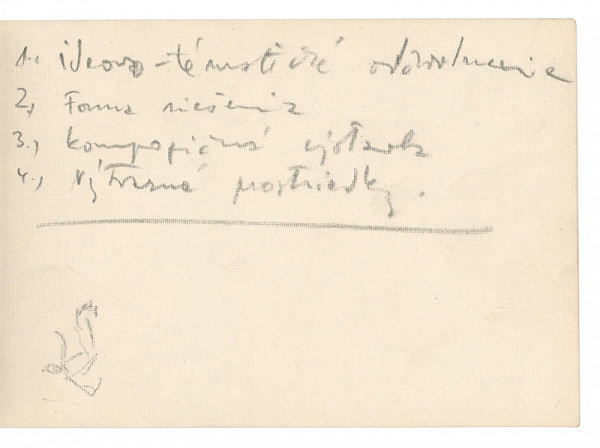 1., ideovo-tématické odôvodnenie
2, Forma riešenia
3., kompozičná výstavba
4., Výtvarné prostriedky.